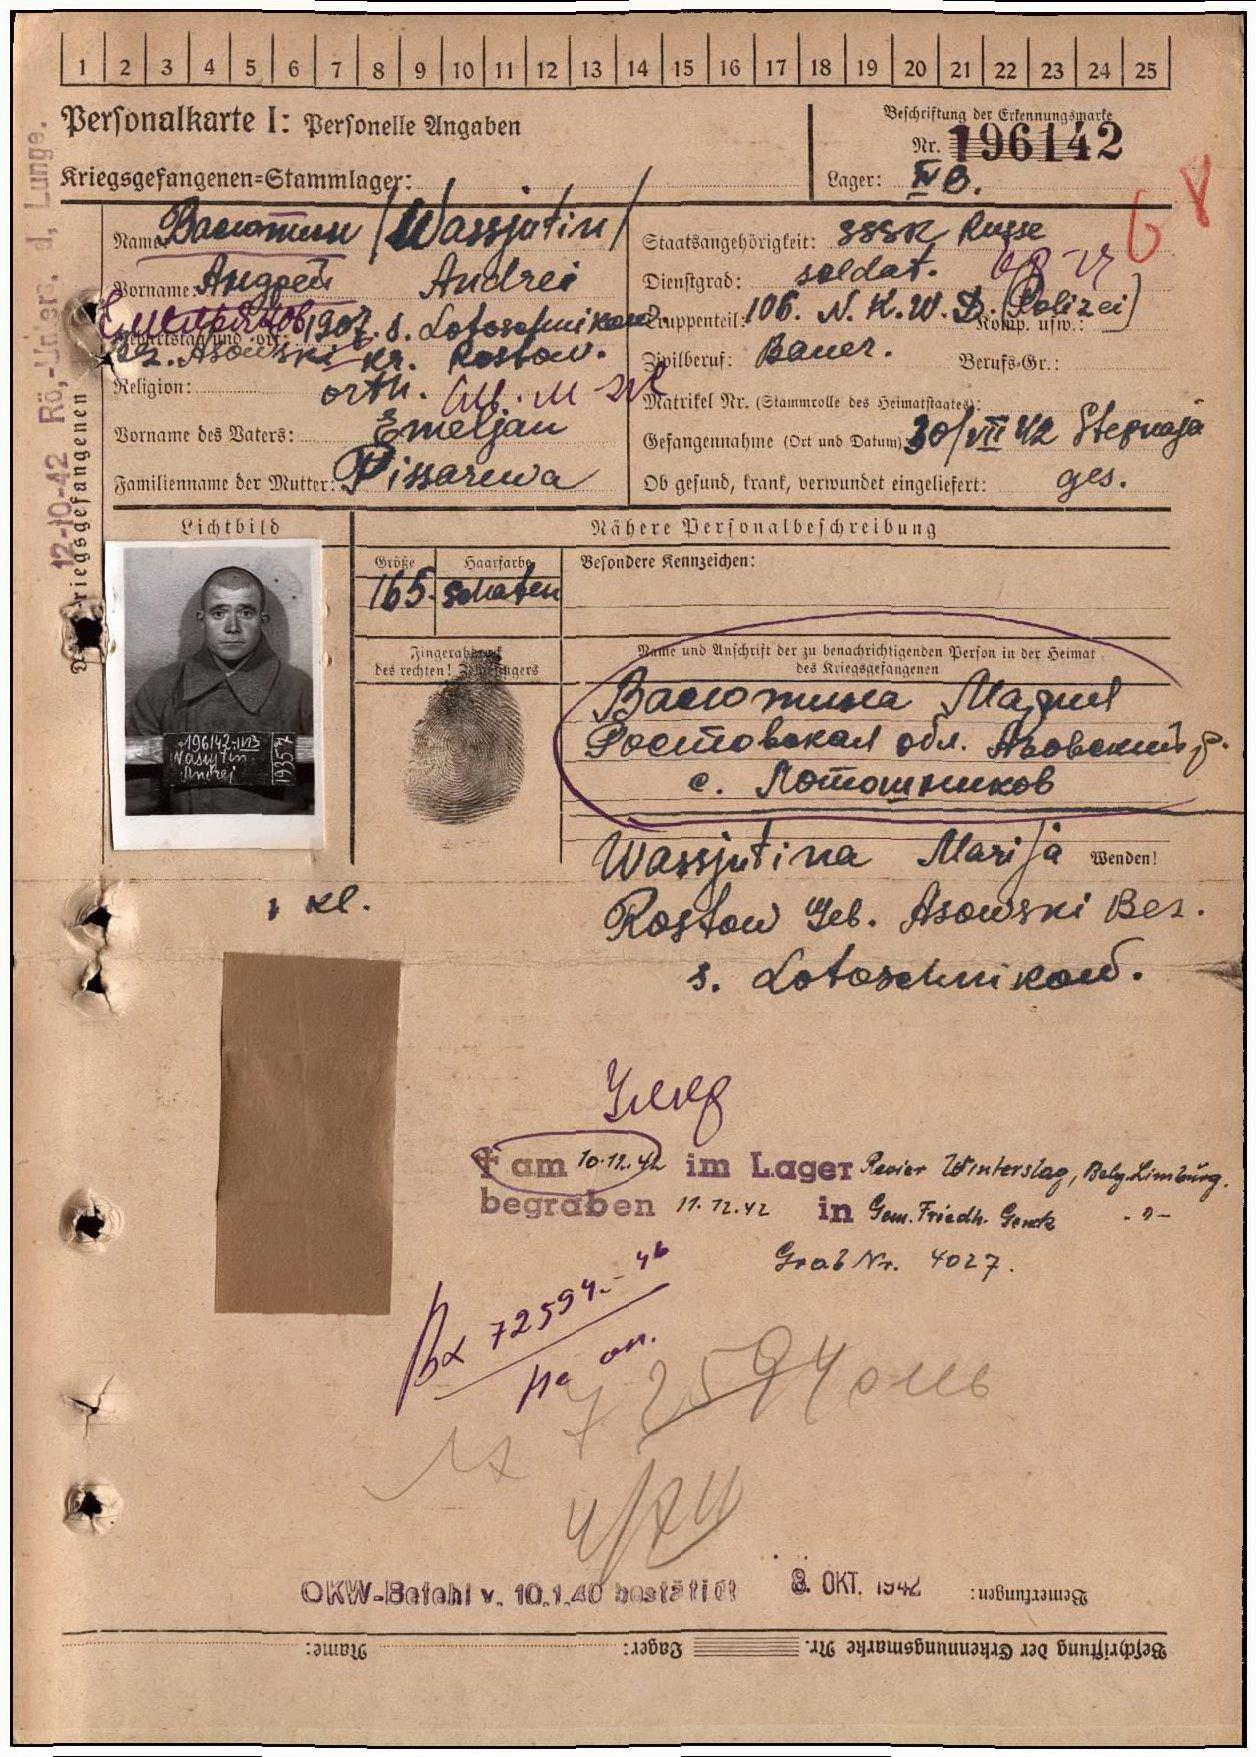 1 2 3 4 5 6 7 8 9 10 11 12 13 14 15 16 17 18 19 20 21 22 23 24 25
Personalkarte I: Personelle Angaben
Kriegsgefangenen=Stammlager:
Beschriftung der Erkennungsmarke
Nr. 196142
Lager: IV B.
68
Name: Васютин /Wassjutin/
Vorname: Андрей Andrei
Geburtstag und -ort: 1907. s. Lotoschnikow
Bez. Asowski kr. Rostow.
Religion: orth.
Vorname des Vaters: Emeljan
Familienname der Mutter: Pissarewa
Staatsangehörigkeit: SSSR Russe
Dienstgrad: soldat.
Truppenteil: 106. N.K.W.D. (Polizei) Komp. usw.:
Zivilberuf: Bauer. Berufs-Gr.:
Matrikel Nr. (Stammrolle des Heimatstaates):
Gefangennahme (Ort und Datum) 30/VII 42 Stepnaja
Ob gesund, krank, verwundet eingeliefert: ges.
12-10-42 Rö.-Unters. d. Lunge.
Lichtbild
Nähere Personalbeschreibung
Größe Haarfarbe Besondere Kennzeichen:
165. schaten
196142-IVB
Vasjutin
Andrej
Fingerabdruck
des rechten! Zeigefingers
Name und Anschrift der zu benachrichtigenden Person in der Heimat
des Kriegsgefangenen
Васютина Мария
Ростовская обл. Азовский р.
с. Лотошников
Wassjutina Marija
Wenden!
Rostow Geb. Asowski Bez.
s. Lotoschnikow.
kl.
† am 10.12.42 im Lager Revier Winterslag, Belg. Limburg.
begraben 11.12.42 in Gem. Friedh. Genk -"-
Grab Nr. 4027.
Вх 72594.- 46
72594
OKW-Befehl v. 10.1.40 bestätigt 8. OKT. 1942
Bemerkungen:
Beschriftung der Erkennungsmarke Nr. Lager: Name: